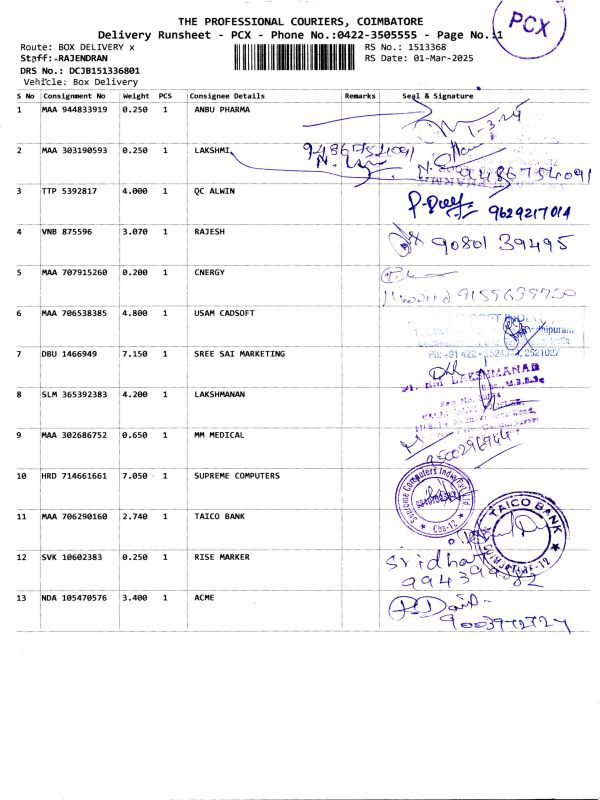 PCX
THE PROFESSIONAL COURIERS, COIMBATORE
Delivery Runsheet - PCX - Phone No.:0422-3505555 - Page No.:1
Route: BOX DELIVERY x
RS No.: 1513368
Staff:-RAJENDRAN
RS Date: 01-Mar-2025
DRS No.: DCJB151336801
Vehicle: Box Delivery
S No Consignment No Weight PCS Consignee Details Remarks Seal & Signature
1 MAA 944833919 0.250 1 ANBU PHARMA
2 MAA 303190593 0.250 1 LAKSHMI
9486754091
9486754091
3 TTP 5392817 4.000 1 QC ALWIN
9629217014
4 VNB 875596 3.070 1 RAJESH 9080139495
5 MAA 707915260 0.200 1 CNERGY
9159639750
6 MAA 706538385 4.800 1 USAM CADSOFT
7 DBU 1466949 7.150 1 SREE SAI MARKETING
8 SLM 365392383 4.200 1 LAKSHMANAN
9 MAA 302686752 0.650 1 MM MEDICAL
10 HRD 714661661 7.050 1 SUPREME COMPUTERS
Supreme Computers India Pvt Ltd
Cbe-12
11 MAA 706290160 2.740 1 TAICO BANK
TAICO BANK
12 SVK 10602383 0.250 1 RISE MARKER
Sridhar
13 NDA 105470576 3.400 1 ACME